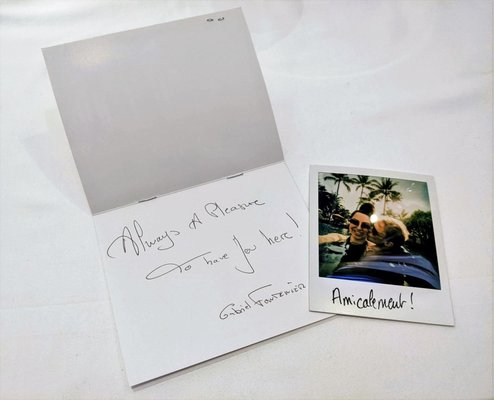 Always A Pleasure
To have you here!
Gabriel
Amicalement!